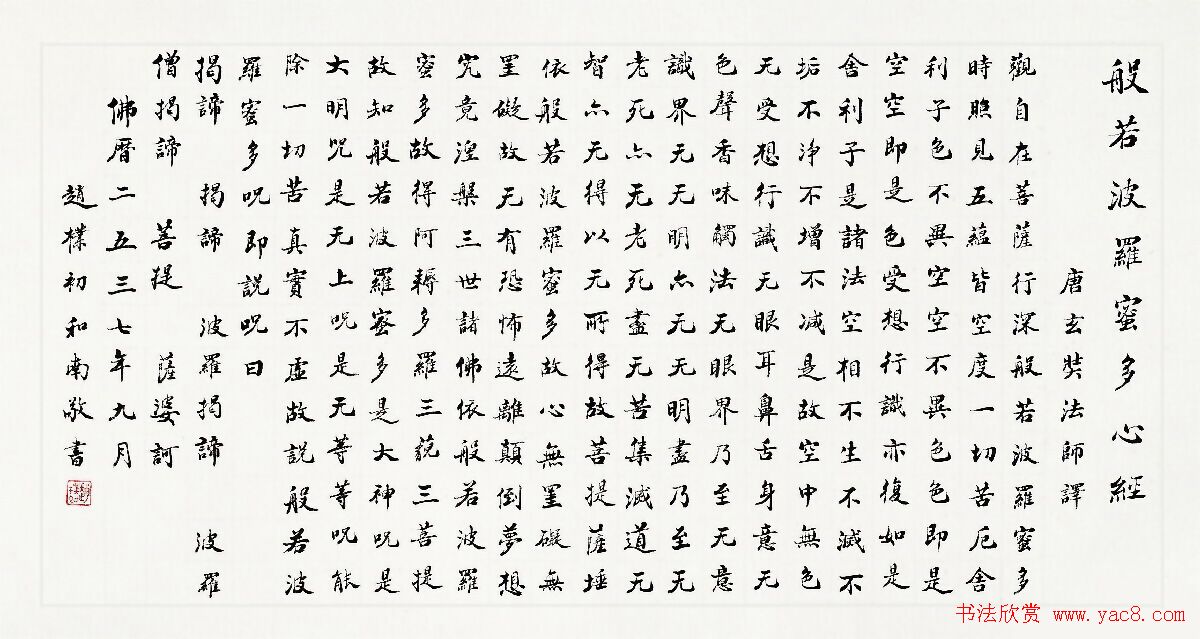 般若波羅蜜多心經
唐玄奘法師譯
觀自在菩薩行深般若波羅蜜多
時照見五蘊皆空度一切苦厄舍
利子色不異空空不異色色即是
空空即是色受想行識亦復如是
舍利子是諸法空相不生不滅不
垢不淨不增不减是故空中無色
无受想行識无眼耳鼻舌身意无
色聲香味觸法无眼界乃至无意
識界无无明亦无无明盡乃至无
老死亦无老死盡无苦集滅道无
智亦无得以无所得故菩提薩埵
依般若波羅蜜多故心無罣礙無
罣礙故无有恐怖遠離顛倒夢想
究竟涅槃三世諸佛依般若波羅
蜜多故得阿耨多羅三藐三菩提
故知般若波羅蜜多是大神呪是
大明呪是无上呪是无等等呪能
除一切苦真實不虛故説般若波
羅蜜多呪即説呪曰
揭諦 揭諦 波羅揭諦 波羅
僧揭諦 菩提 薩婆訶
佛曆二五三七年九月
趙樸初和南敬書
书法欣赏 www.yac8.com